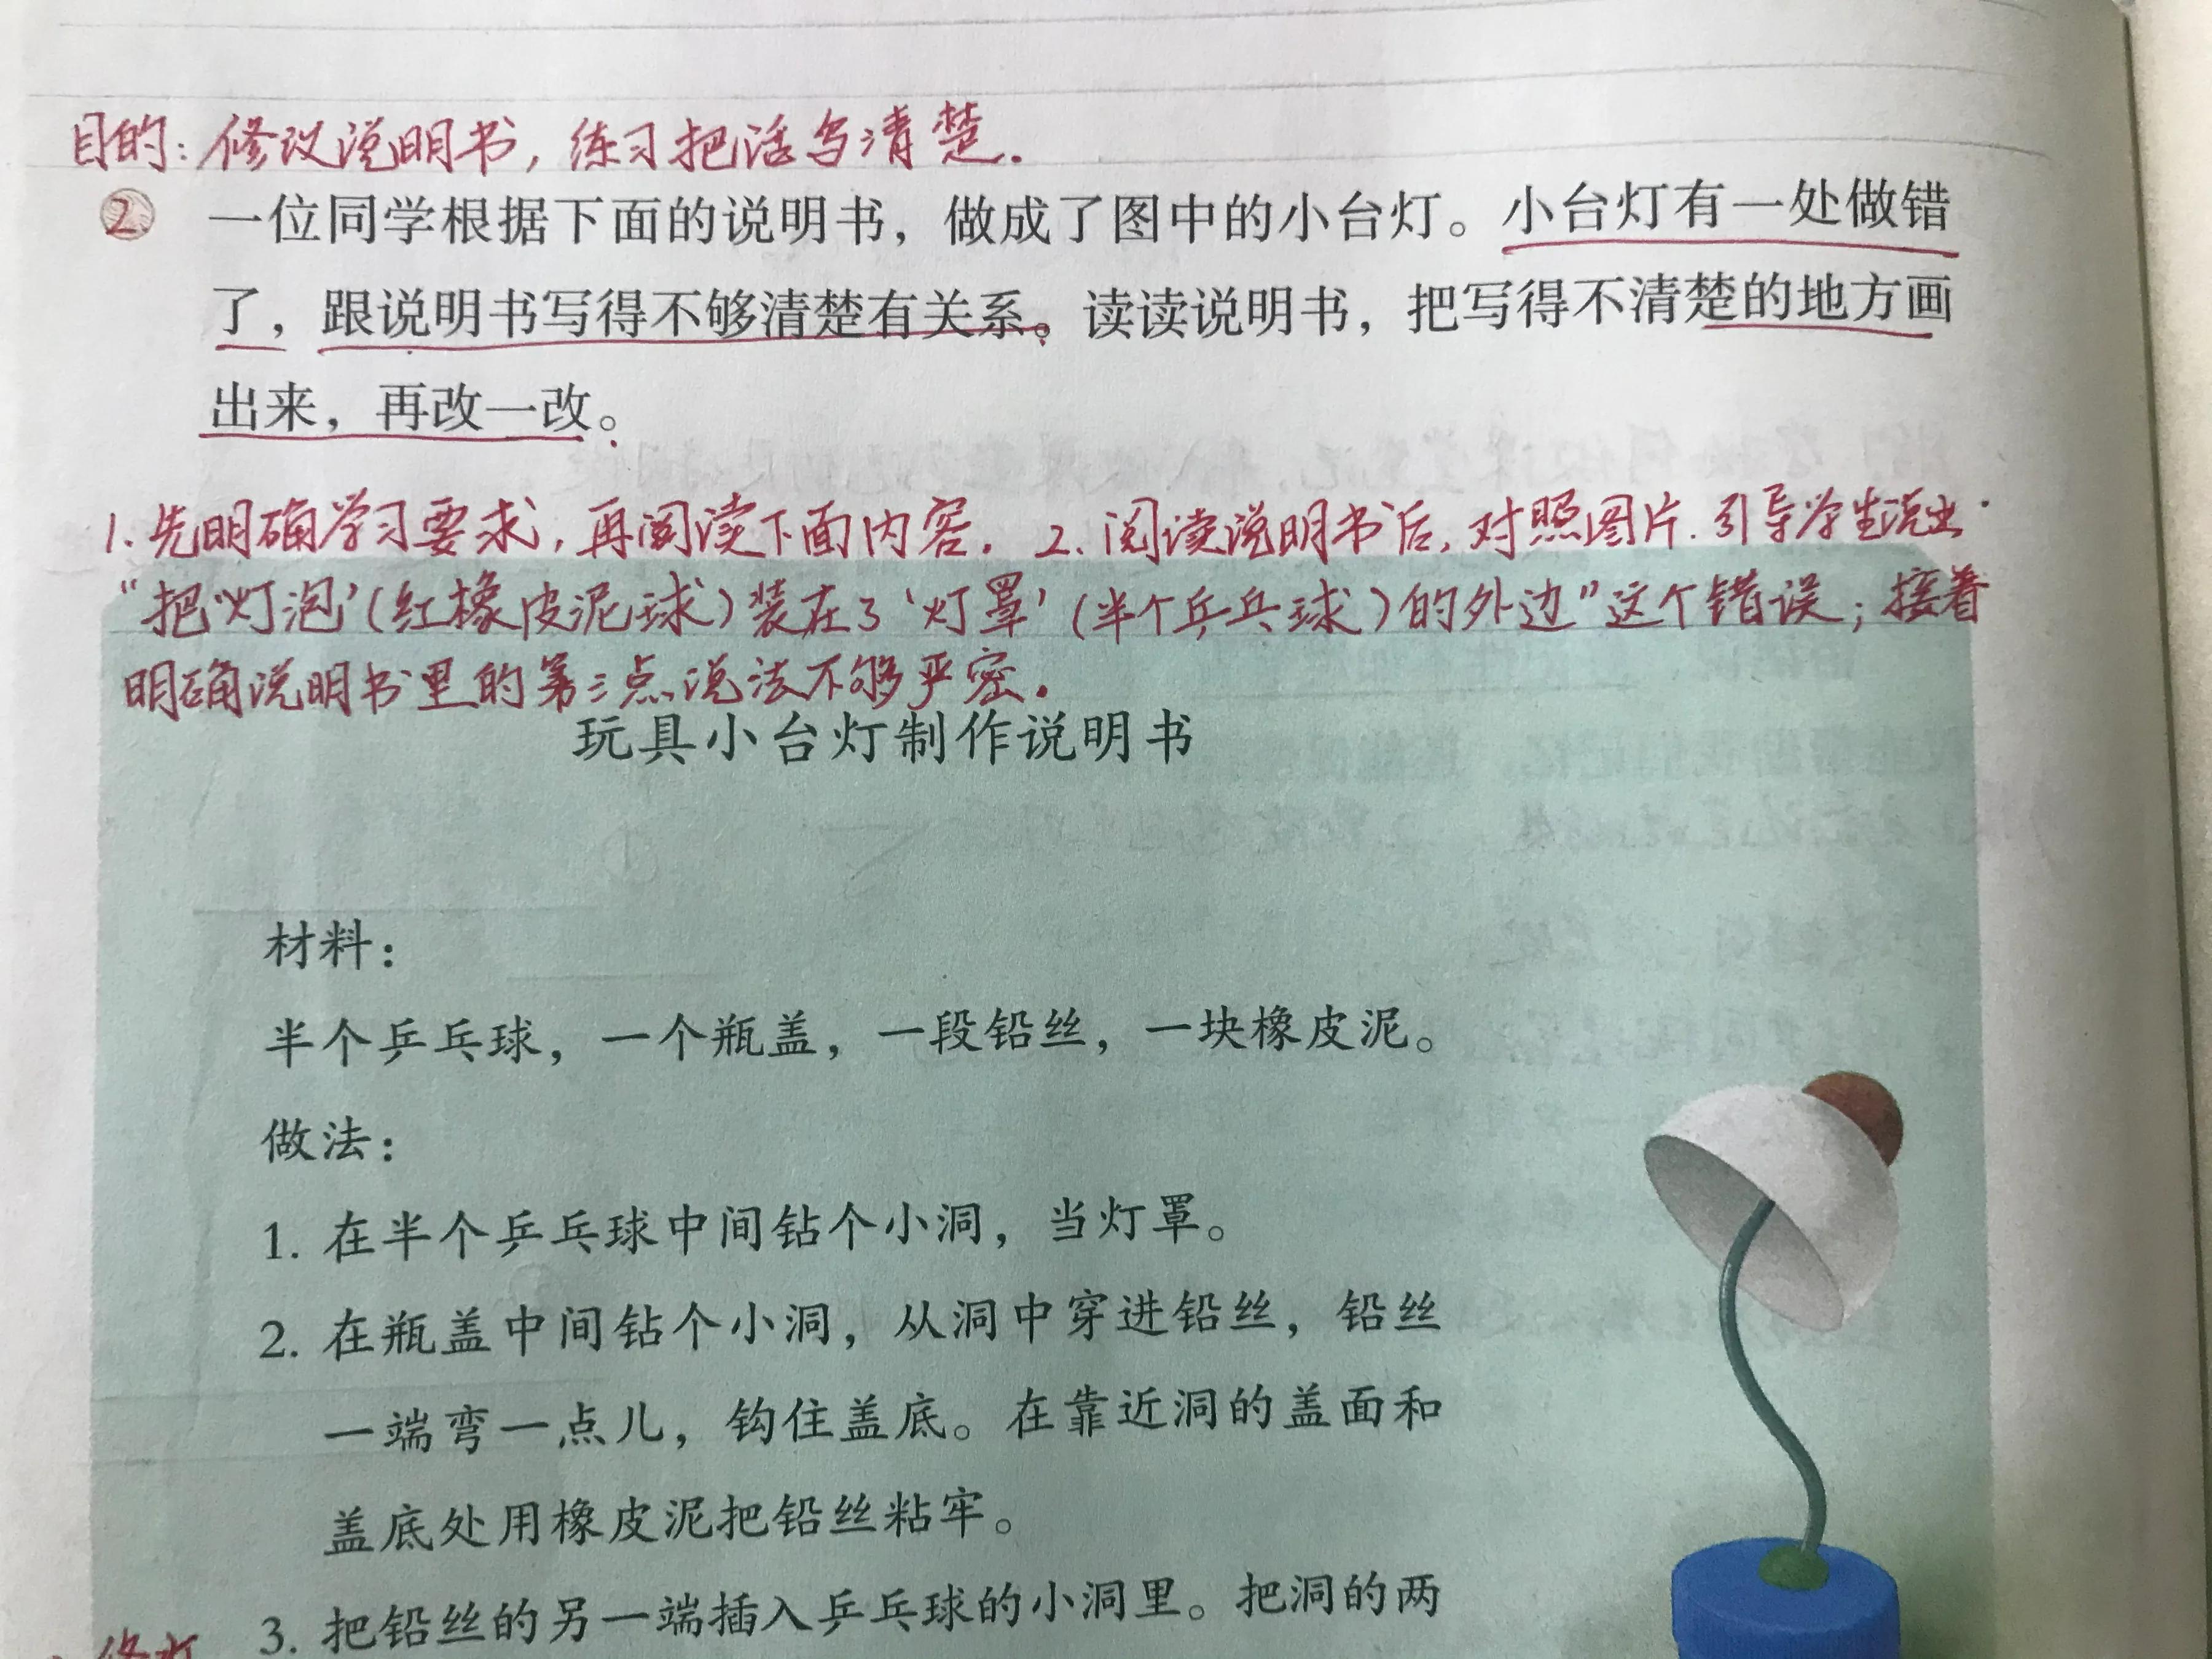 目的：修改说明书，练习把话写清楚．
2 一位同学根据下面的说明书，做成了图中的小台灯。小台灯有一处做错
了，跟说明书写得不够清楚有关系。读读说明书，把写得不清楚的地方画
出来，再改一改。
1.先明确学习要求，再阅读下面内容．2.阅读说明书后，对照图片．引导学生说出
“把‘灯泡’（红橡皮泥球）装在了‘灯罩’（半个乒乓球）的外边”这个错误；接着
明确说明书里的第三点说法不够严密．
玩具小台灯制作说明书
材料：
半个乒乓球，一个瓶盖，一段铅丝，一块橡皮泥。
做法：
1. 在半个乒乓球中间钻个小洞，当灯罩。
2. 在瓶盖中间钻个小洞，从洞中穿进铅丝，铅丝
一端弯一点儿，钩住盖底。在靠近洞的盖面和
盖底处用橡皮泥把铅丝粘牢。
3. 把铅丝的另一端插入乒乓球的小洞里。把洞的两